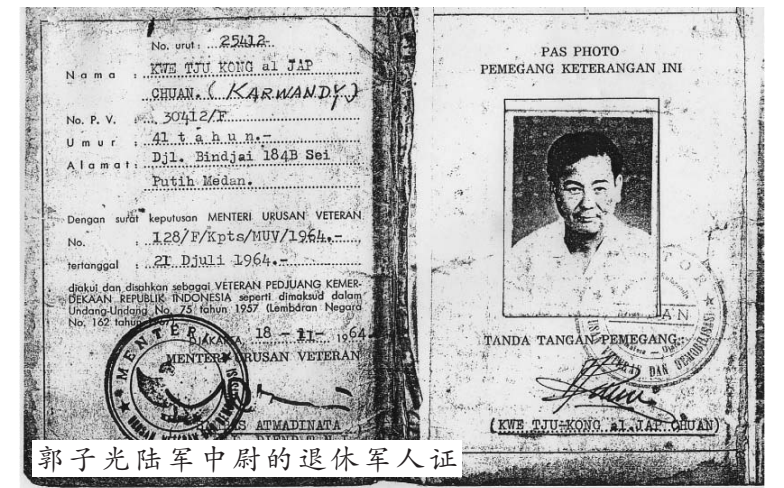 No. urut: 25412
Nama : KWE TJU KONG al JAP
CHUAN. (KARWANDY)
No. P. V. 30412/F
Umur : 41 tahun.-
Alamat: Djl. Bindjai 184B Sei
Putih Medan.
Dengan surat keputusan MENTERI URUSAN VETERAN
No. : 128/F/Kpts/MUV/1964.-
tertanggal : 21 Djuli 1964.-
diakui dan disahkan sebagai VETERAN PEDJUANG KEMER-
DEKAAN REPUBLIK INDONESIA seperti dimaksud dalam
Undang-Undang No. 75 tahun 1957 (Lembaran Negara
No. 162 tahun
DJAKARTA, 18 - 11 - 1964
MENTERI URUSAN VETERAN
MENTERI
ATMADINATA
PAS PHOTO
PEMEGANG KETERANGAN INI
TANDA TANGAN PEMEGANG:
VETERAN DAN DEMOBILISASI
(KWE TJU-KONG al.JAP CHUAN)
郭子光陆军中尉的退休军人证